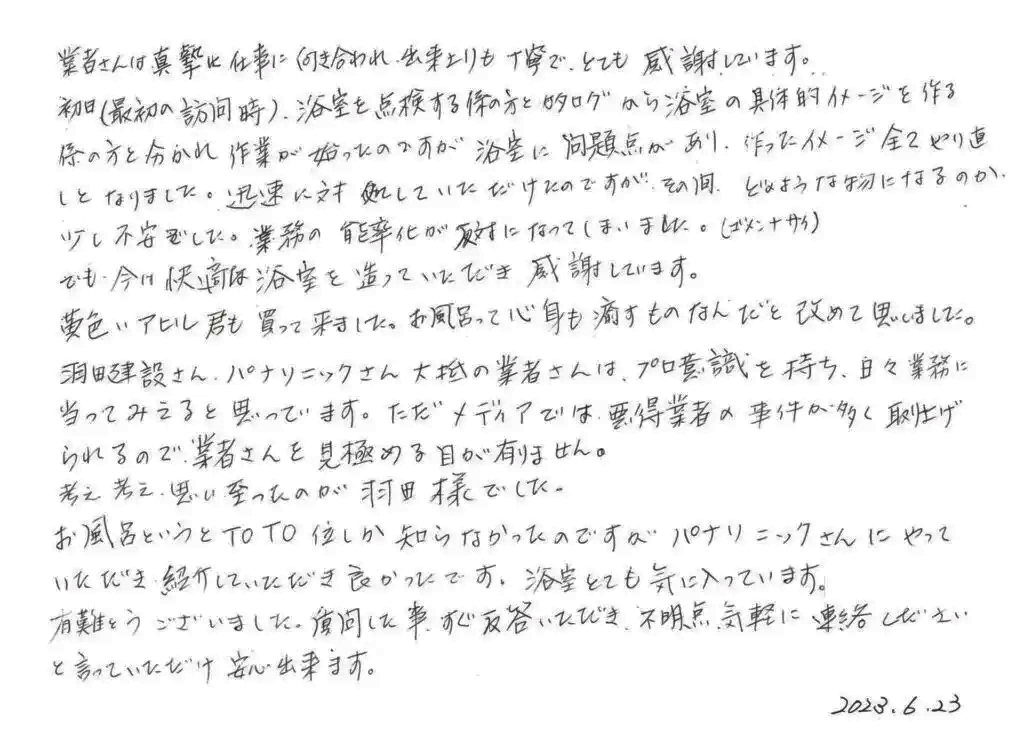 業者さんは真摯に仕事に向き合われ、出来上りも丁寧で、とても感謝しています。
初日(最初の訪問時)、浴室を点検する係の方とカタログから浴室の具体的イメージを作る
係の方と分かれ作業が始ったのですが浴室に問題点があり、作ったイメージ全てやり直
しとなりました。迅速に対処していただけたのですが、その間、どのような物になるのか、
少し不安でした。業務の能率化が反対になってしまいました。(ゴメンナサイ)
でも、今は快適な浴室を造っていただき感謝しています。
黄色いアヒル君も買って来ました。お風呂って心身も癒すものなんだと改めて思いました。
羽田建設さん、パナソニックさん大抵の業者さんは、プロ意識を持ち、日々業務に
当ってみえると思っています。ただメディアでは、悪得業者の事件が多く取上げ
られるので、業者さんを見極める目が有りません。
考え考え、思い至ったのが羽田様でした。
お風呂というとTOTO位しか知らなかったのですがパナソニックさんにやって
いただき、紹介していただき良かったです。浴室とても気に入っています。
有難とうございました。質問した事、すぐ反答いただき、不明点、気軽に連絡しださい
と言っていただけ安心出来ます。
2023.6.23